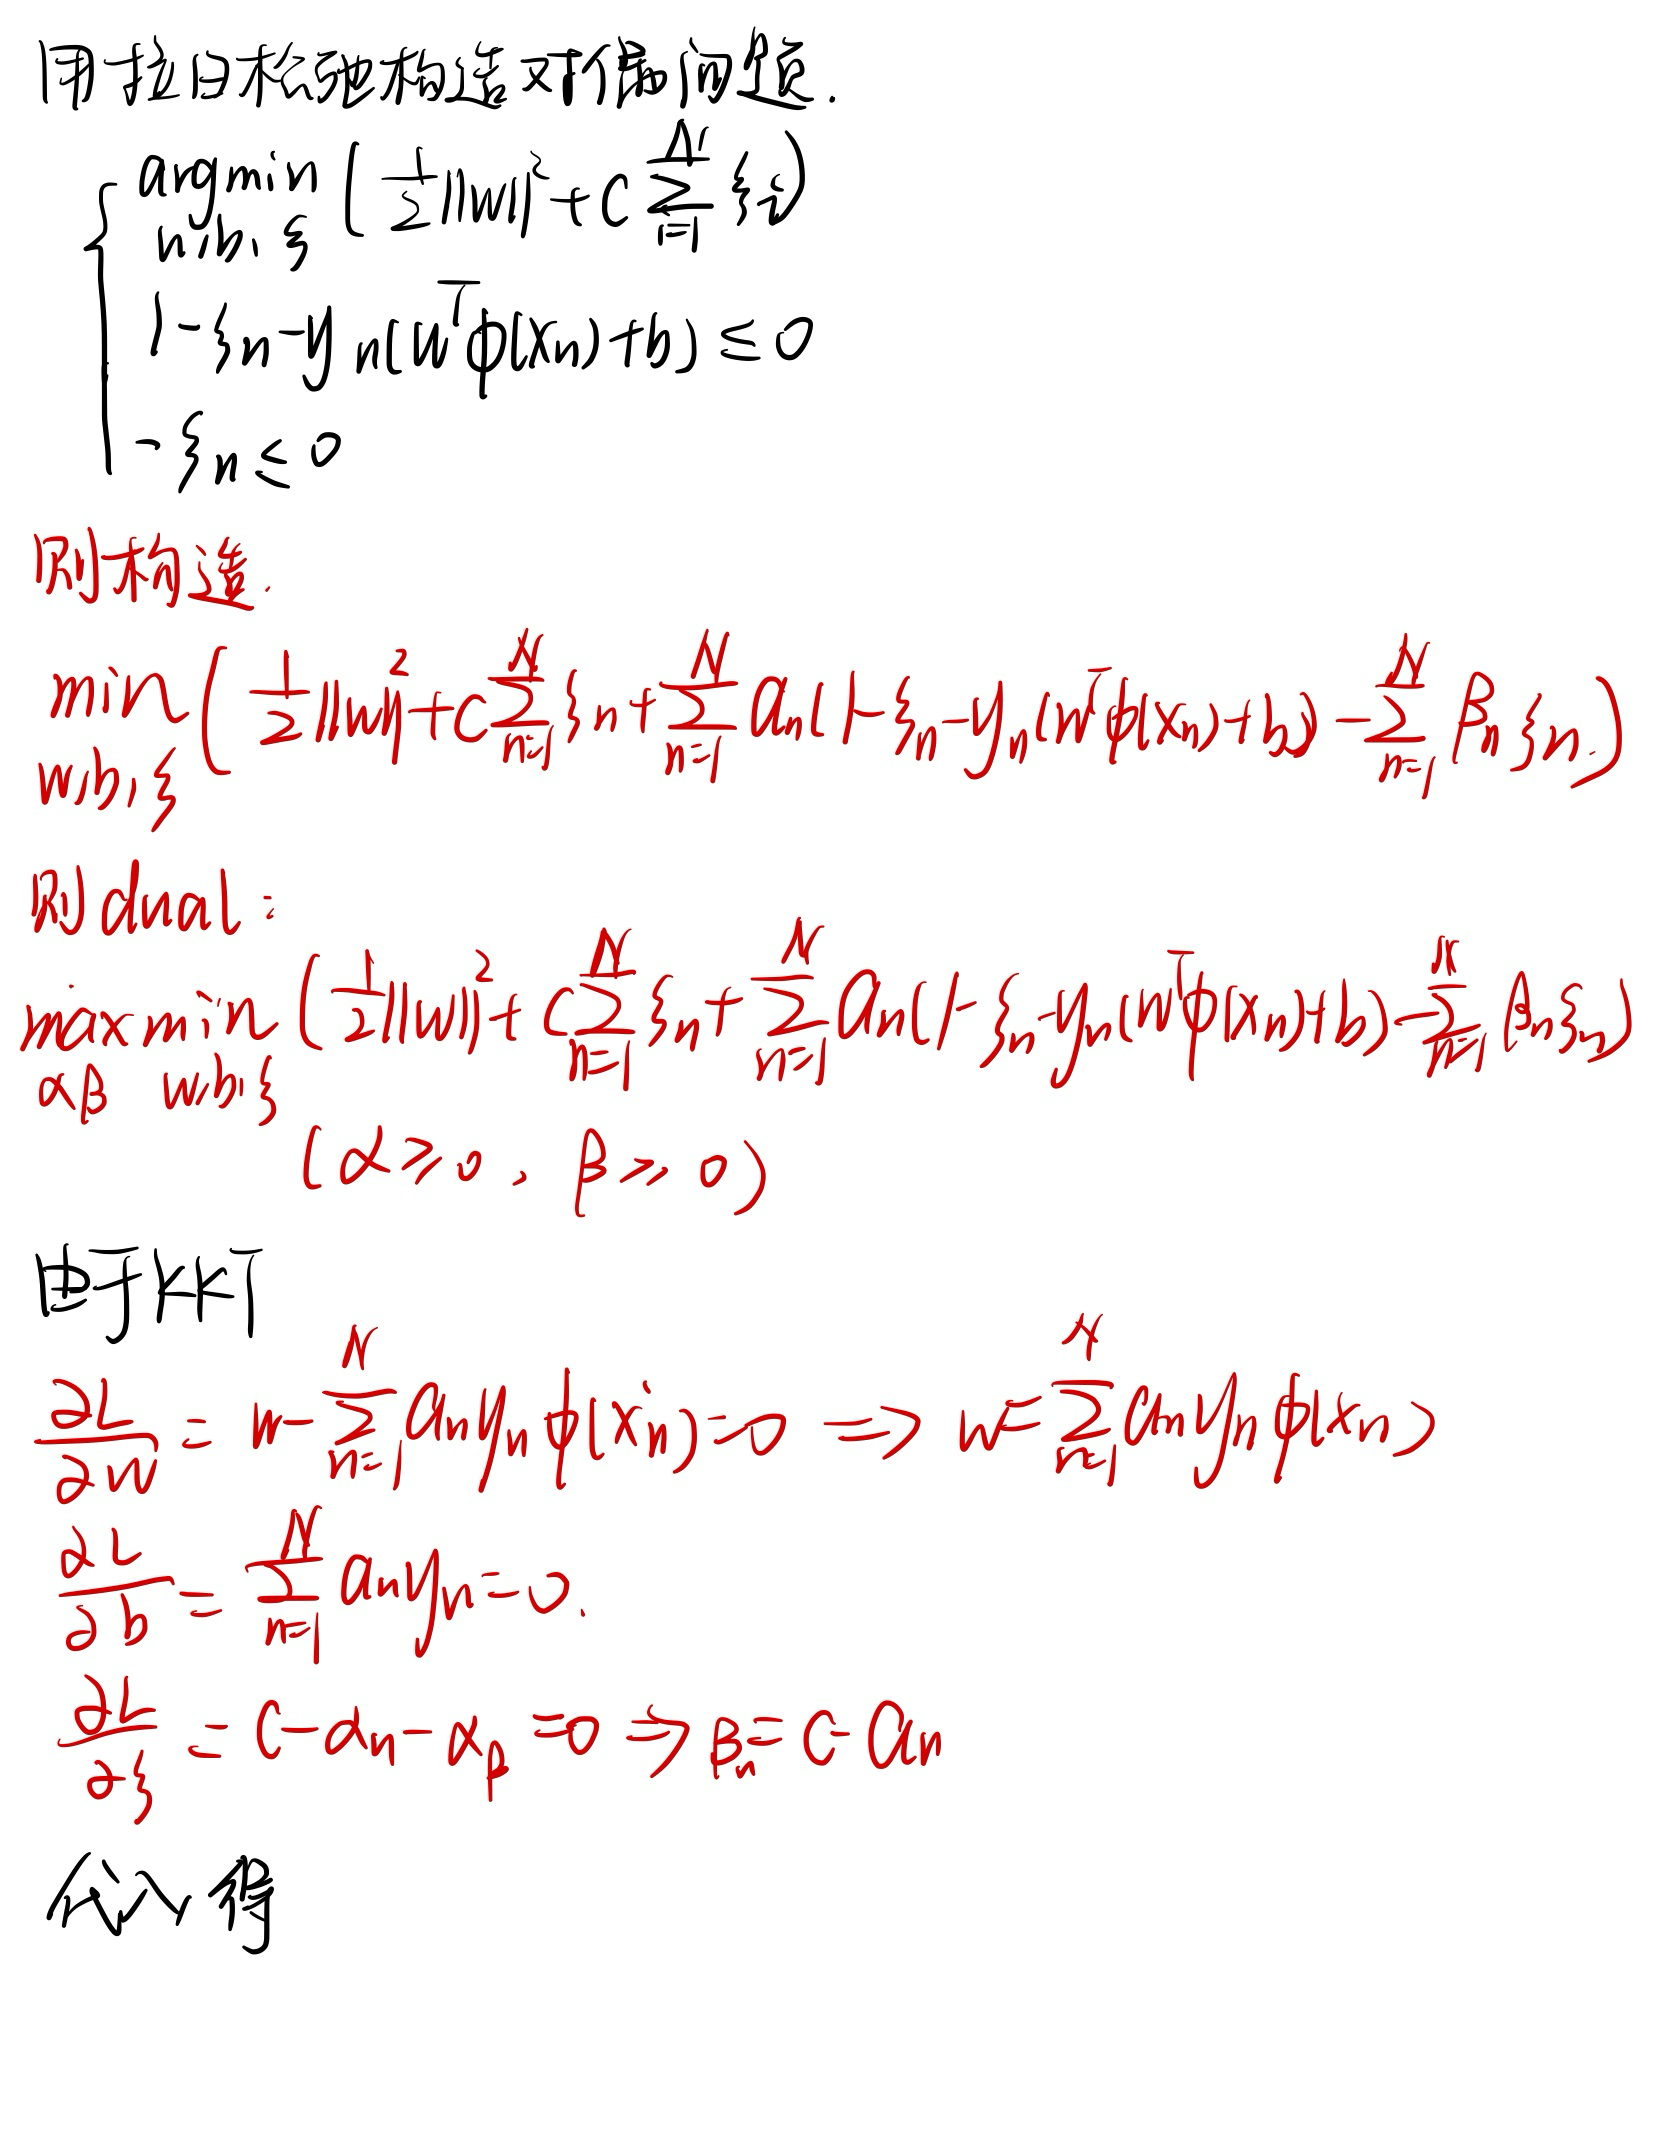 用拉日松弛构造对偶问题.
argmin w,b,ξ ( 1/2 ||w||² + C ∑_{i=1}^{N} ξi )
1-ξn-yn(w^Tφ(xn)+b) ≤ 0
-ξn ≤ 0
则构造.
min w,b,ξ ( 1/2 ||w||² + C ∑_{n=1}^{N} ξn + ∑_{n=1}^{N} an(1-ξn-yn(w^Tφ(xn)+b)) - ∑_{n=1}^{N} βn ξn. )
则dual:
max αβ min w,b,ξ ( 1/2 ||w||² + C ∑_{n=1}^{N} ξn + ∑_{n=1}^{N} an(1-ξn-yn(w^Tφ(xn)+b) - ∑_{n=1}^{N} βnξn )
(α≥0, β≥0)
由于KKT
∂L/∂w = w - ∑_{n=1}^{N} an yn φ(xn) = 0 ⇒ w = ∑_{n=1}^{N} an yn φ(xn)
∂L/∂b = ∑_{n=1}^{N} an yn = 0.
∂L/∂ξ = C - αn - αβ = 0 ⇒ βn = C - an
代入得